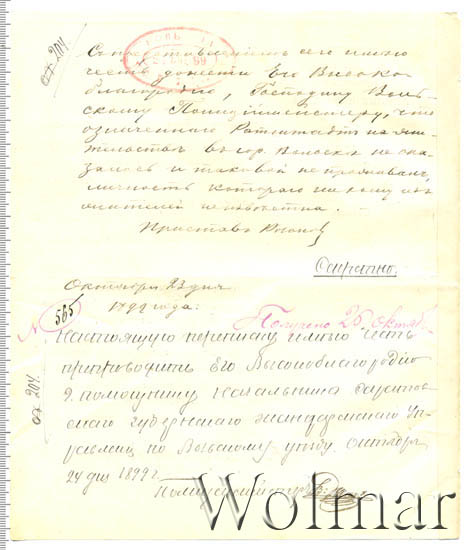 ох 204
С представлением сего имею
честь донести Его Высоко-
благородию, Господину Воль-
скому Полицiймейстеру, что
означенного на жи-
тельстве в гор. Вольске не ока-
залось и таковой не проживал,
личность которого никому из
жителей неизвестна.
Пристав
Секретно.
Октября 23 дня
1899 года.
№ 565
Получено 25 октяб
Настоящую переписку имею честь
препроводить Его Высокоблагородiю
г. помощнику начальника Саратов-
скаго губернскаго жандармскаго Уп-
равленiя по Вольскому уезду. Октября
24 дня 1899 г.
ох 204
Полицiймейстер
Wolmar